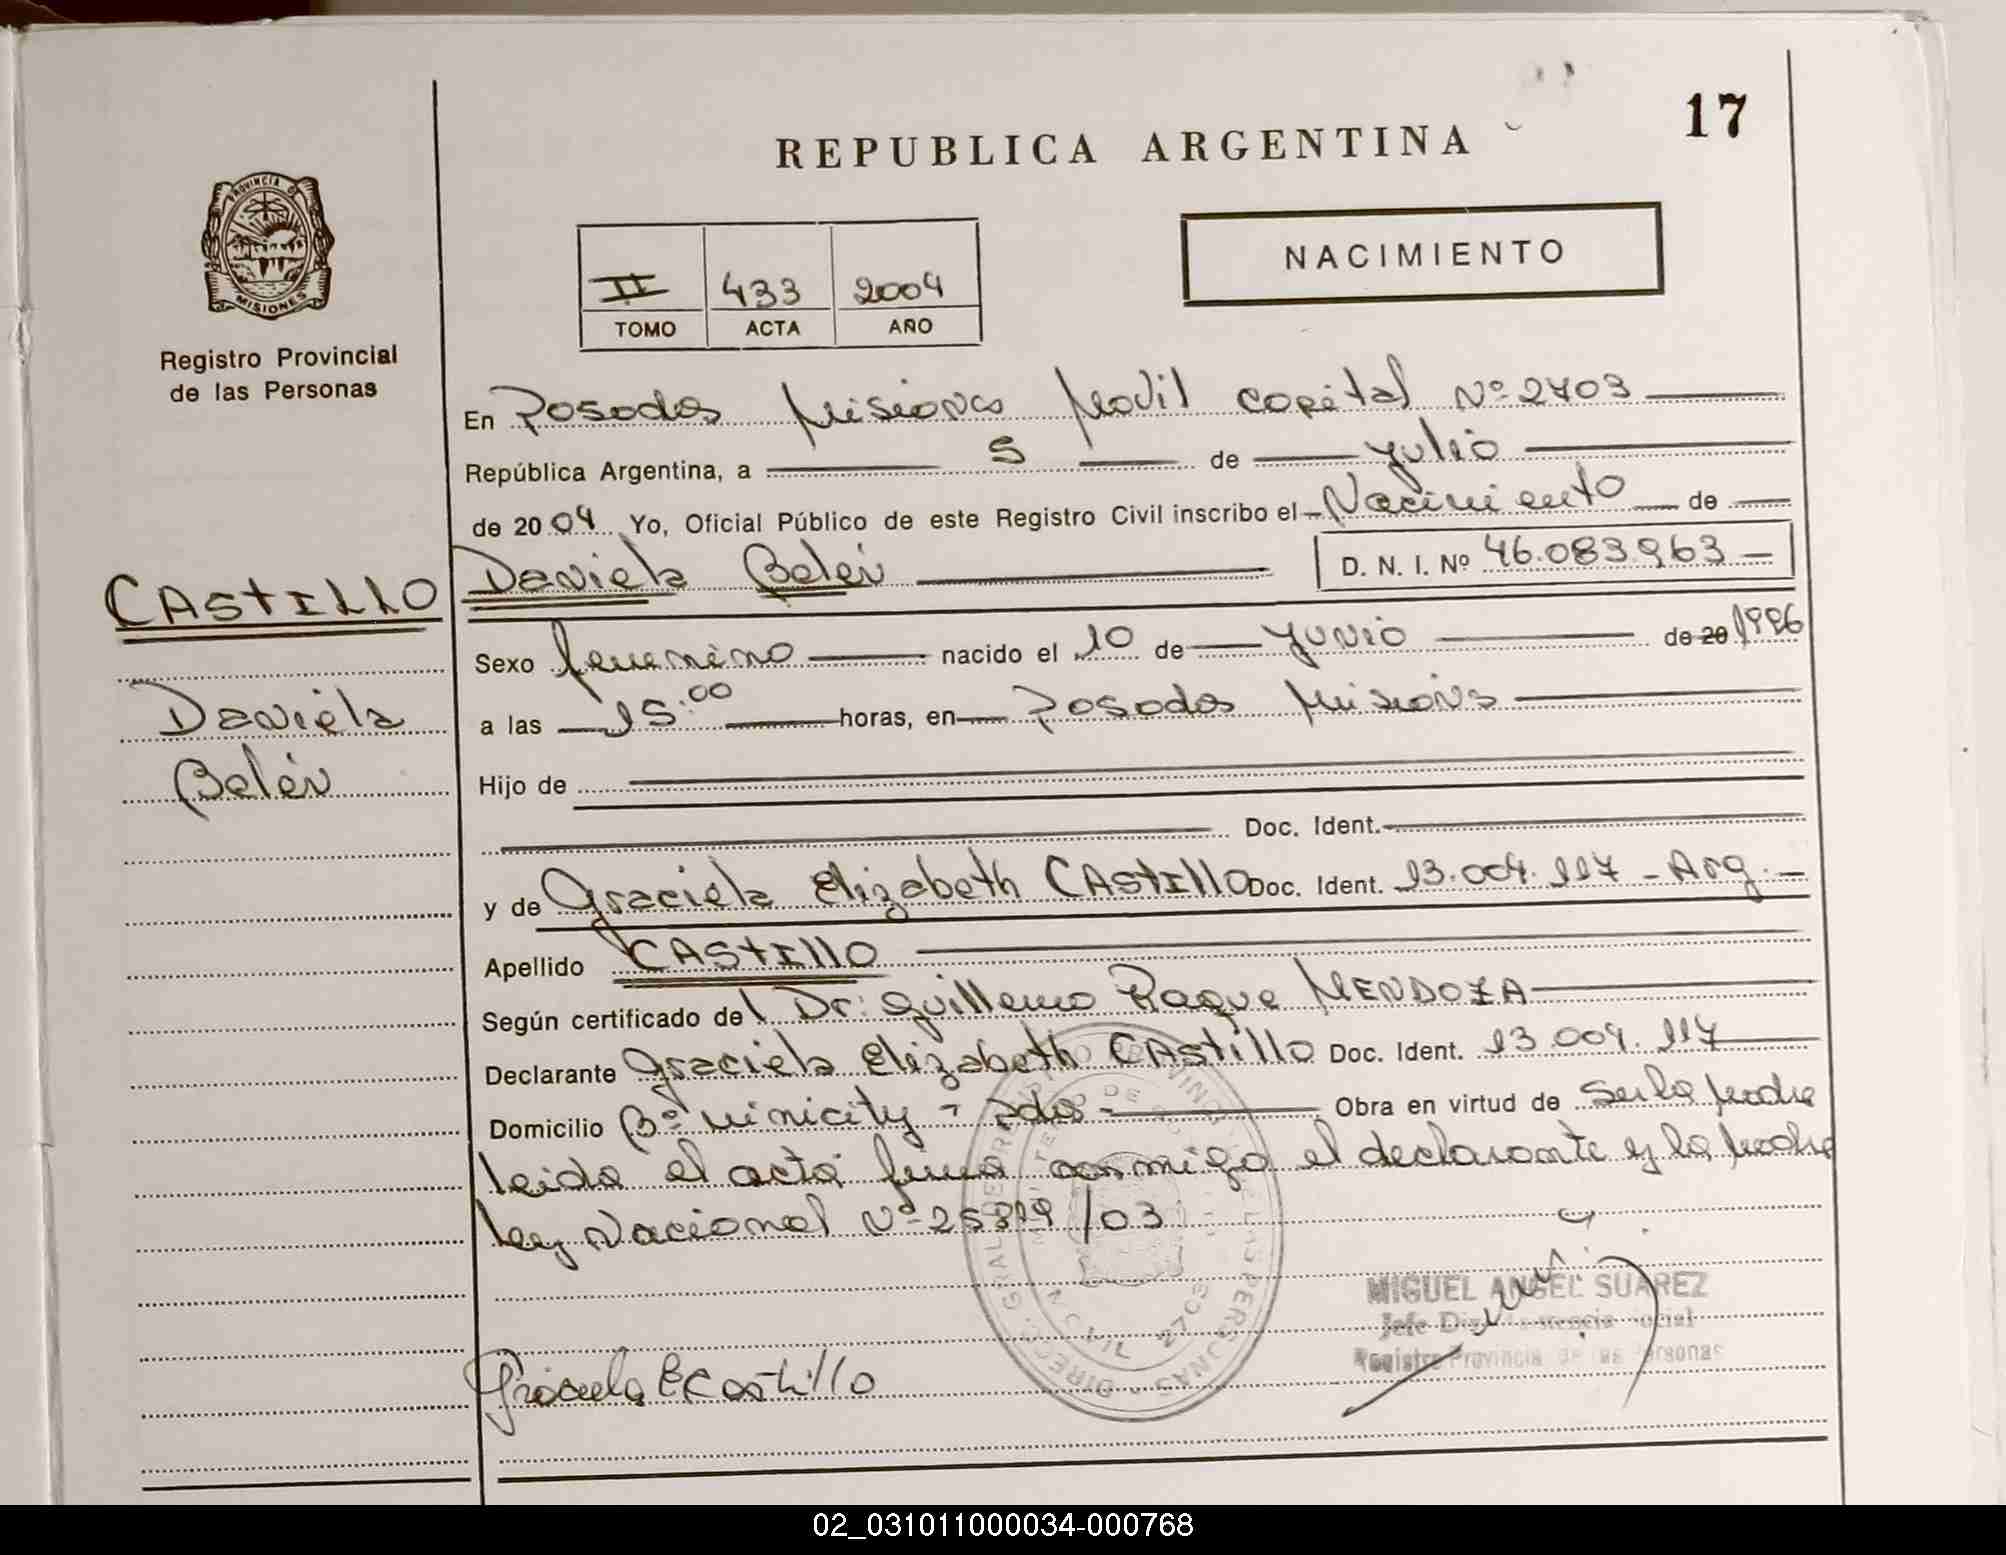 17
REPUBLICA ARGENTINA
NACIMIENTO
PROVINCIA DE
MISIONES
Registro Provincial
de las Personas
II 433 2004
TOMO ACTA AÑO
En Posadas Misiones Movil Capital Nº 2703
República Argentina, a 5 de julio
de 2004 Yo, Oficial Público de este Registro Civil inscribo el Nacimiento de
CASTILLO Daniela Belén D. N. I. Nº 46.083.963
Sexo femenino nacido el 10 de Junio de 20 1996
Daniela
a las 15:00 horas, en Posadas Misiones
Belén
Hijo de
Doc. Ident.
y de Graciela Elizabeth CASTILLO Doc. Ident. 13.004.117 - Arg. -
Apellido CASTILLO
Según certificado del Dr: Guillermo Roque MENDOZA
Declarante Graciela Elizabeth CAstillo Doc. Ident. 13.004.117
Domicilio Bº Minicity - Pdas - Obra en virtud de ser la Madre
leida el acta firma conmigo el declarante y la Madre
Ley Nacional Nº 25819/03
MIGUEL ANGEL SUAREZ
Registro Provincial de las Personas
Graciela E Castillo
02_031011000034-000768